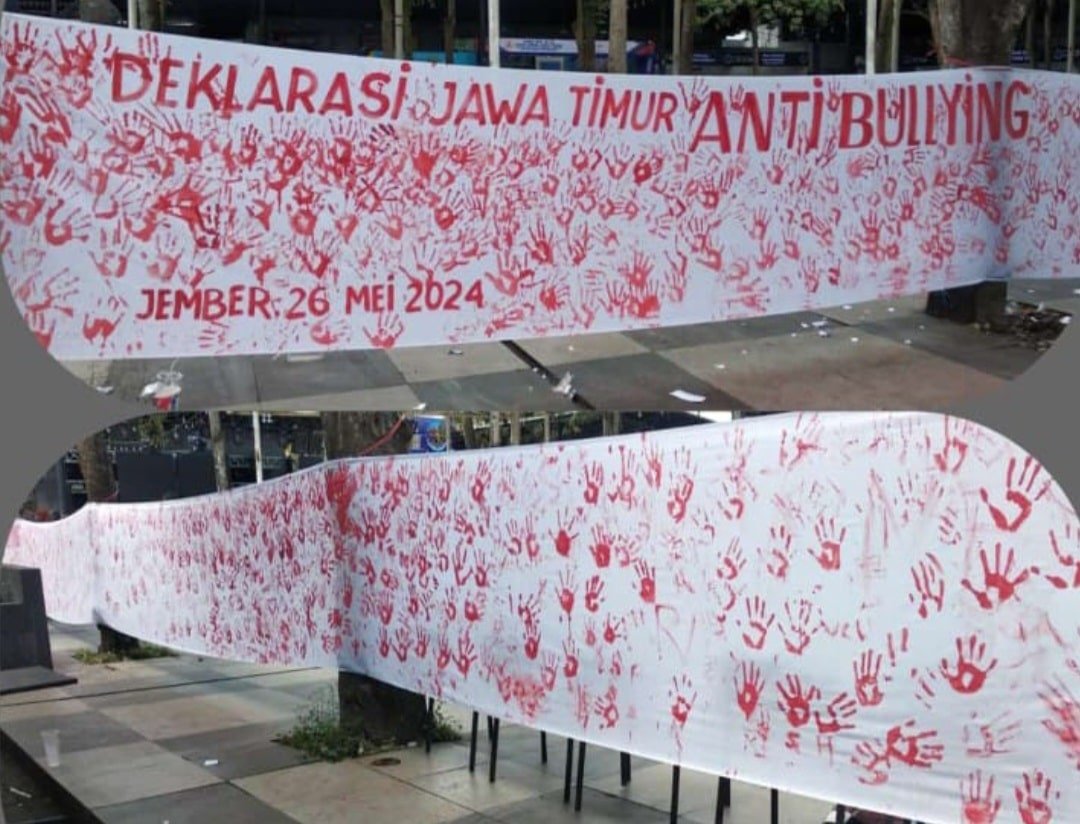 DEKLARASI JAWA TIMUR ANTI BULLYING
JEMBER, 26 MEI 2024